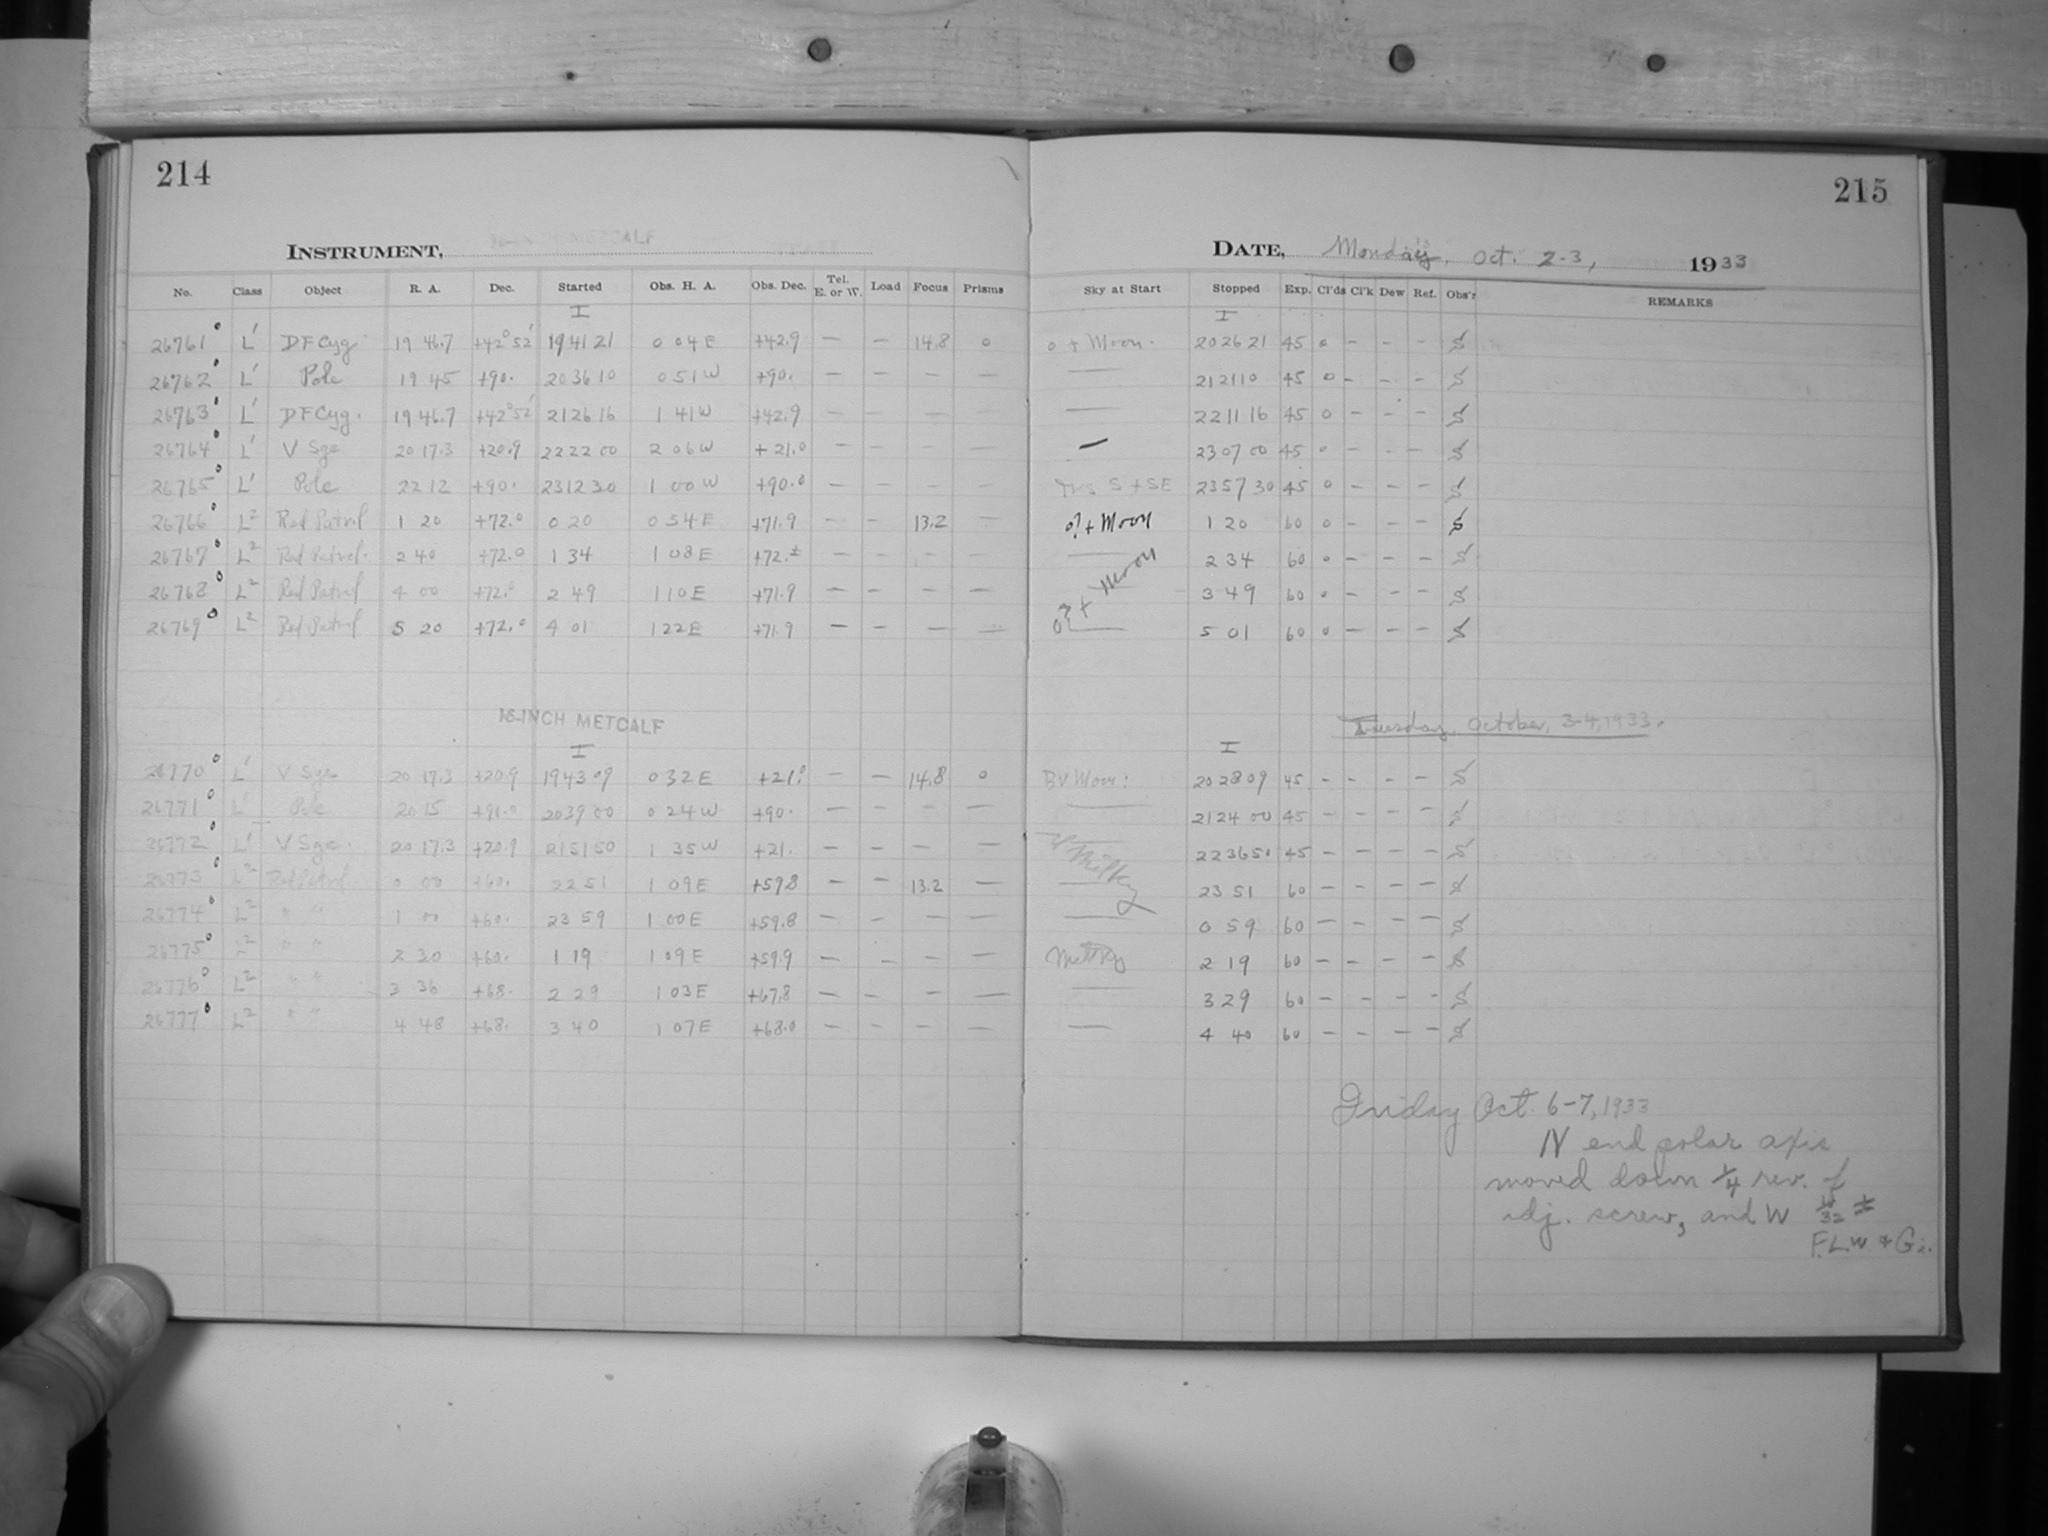 214
215
INSTRUMENT, 16-INCH METCALF
DATE, Monday, Oct. 2-3, 1933
No. Class Object R. A. Dec. Started Obs. H. A. Obs. Dec. Tel. E. or W. Load Focus Prisms Sky at Start Stopped Exp. Cl'ds Cl'k Dew Ref. Obs'r REMARKS
I I
26761 L' DF Cyg. 19 46.7 +42°52' 19 41 21 0 04 E +42.9 — — 14.8 0 0 + Moon. 20 26 21 45 0 - - - S
26762 L' Pole 19 45 +90. 20 36 10 0 51 W +90. — — — — — 21 21 10 45 0 - - - S
26763 L' DF Cyg. 19 46.7 +42°52' 21 26 16 1 41 W +42.9 — — — — — 22 11 16 45 0 - - - S
26764 L' V Sge 20 17.3 +20.9 22 22 00 2 06 W +21.0 — — — — — 23 07 00 45 0 - - - S
26765 L' Pole 22 12 +90. 23 12 30 1 00 W +90.0 — — — — S + SE 23 57 30 45 0 - - - S
26766 L² Red Patrol 1 20 +72.0 0 20 0 54 E +71.9 — — 13.2 — 0? + Moon 1 20 60 0 - - - S
26767 L² Red Patrol. 2 40 +72.0 1 34 1 08 E +72.± — — — — — 2 34 60 0 - - - S
26768 L² Red Patrol 4 00 +72.0 2 49 1 10 E +71.9 — — — — 0? + Moon 3 49 60 0 - - - S
26769 L² Red Patrol 5 20 +72.0 4 01 1 22 E +71.9 — — — — — 5 01 60 0 - - - S
16-INCH METCALF
Tuesday, October, 3-4, 1933.
I I
26770 L' V Sge 20 17.3 +20.9 19 43 09 0 32 E +21.0 — — 14.8 0 BV Moon: 20 28 09 45 - - - - S
26771 L' Pole 20 15 +90.0 20 39 00 0 24 W +90. — — — — — 21 24 00 45 - - - - S
26772 L' V Sge. 20 17.3 +20.9 21 51 50 1 35 W +21. — — — — Milky 22 36 50 45 - - - - S
26773 L² Red Patrol 0 00 +60. 22 51 1 09 E +59.8 — — 13.2 — — 23 51 60 - - - - S
26774 L² " " 1 00 +60. 23 59 1 00 E +59.8 — — — — — 0 59 60 - - - - S
26775 L² " " 2 30 +60. 1 19 1 09 E +59.9 — — — — Milky 2 19 60 - - - - S
26776 L² " " 3 36 +68. 2 29 1 03 E +67.8 — — — — — 3 29 60 - - - - S
26777 L² " " 4 48 +68. 3 40 1 07 E +68.0 — — — — — 4 40 60 - - - - S
Friday Oct. 6-7, 1933
N end polar axis
moved down 1/4 rev. of
adj. screw, and W 1/32 ±
F.L.W & Gi.